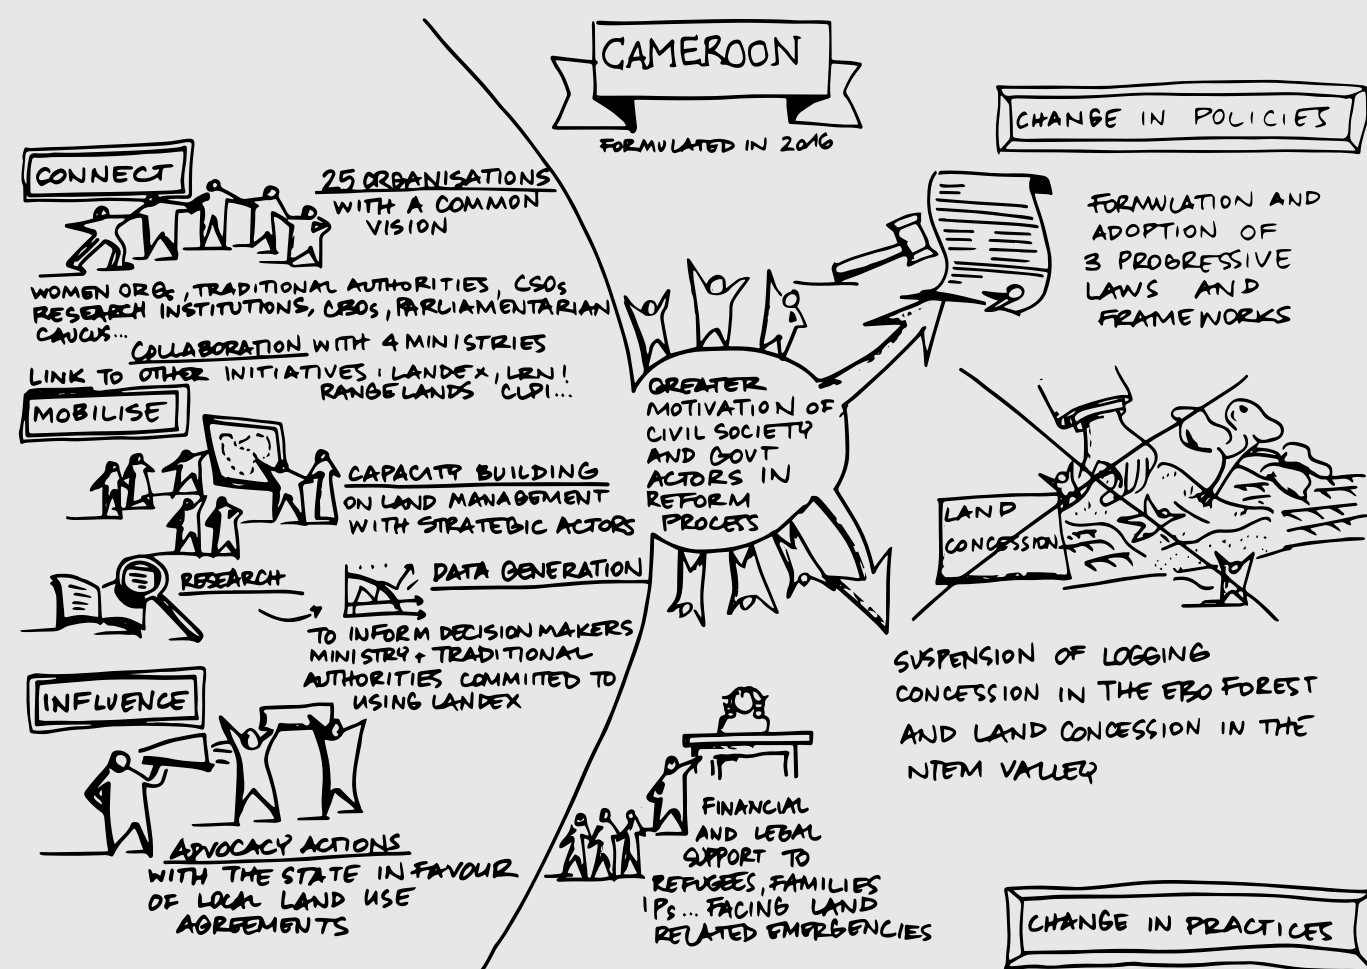 CAMEROON
FORMULATED IN 2016
CONNECT
25 ORGANISATIONS
WITH A COMMON
VISION
WOMEN ORG, TRADITIONAL AUTHORITIES, CSOs
RESEARCH INSTITUTIONS, CBOs, PARLIAMENTARIAN
CAUCUS...
COLLABORATION WITH 4 MINISTRIES
LINK TO OTHER INITIATIVES: LANDEX, LRN!
RANGELANDS CLPI...
MOBILISE
CAPACITY BUILDING
ON LAND MANAGEMENT
WITH STRATEGIC ACTORS
RESEARCH
DATA GENERATION
TO INFORM DECISION MAKERS
MINISTRY + TRADITIONAL
AUTHORITIES COMMITED TO
USING LANDEX
INFLUENCE
ADVOCACY ACTIONS
WITH THE STATE IN FAVOUR
OF LOCAL LAND USE
AGREEMENTS
GREATER
MOTIVATION OF
CIVIL SOCIETY
AND GOVT
ACTORS IN
REFORM
PROCESS
FINANCIAL
AND LEGAL
SUPPORT TO
REFUGEES, FAMILIES
IPs... FACING LAND
RELATED EMERGENCIES
CHANGE IN POLICIES
FORMULATION AND
ADOPTION OF
3 PROGRESSIVE
LAWS AND
FRAMEWORKS
LAND
CONCESSION
SUSPENSION OF LOGGING
CONCESSION IN THE EBO FOREST
AND LAND CONCESSION IN THE
NTEM VALLEY
CHANGE IN PRACTICES